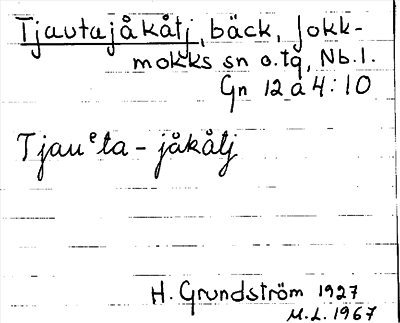 Tjautajåkåtj, bäck, Jokk-
mokks sn o.tg, Nb.l.
Gn 12 a 4:10
Tjauᵉta-jåkåtj
H. Grundström 1927
M.L. 1967